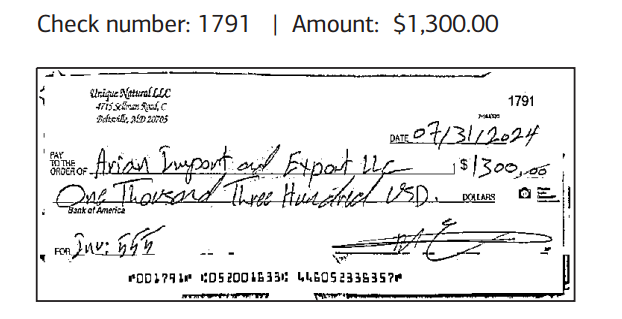 Check number: 1791 | Amount: $1,300.00
Unique Natural LLC
4715 Sellman Road, C
Beltsville, MD 20705
1791
DATE 07/31/2024
PAY TO THE ORDER OF Arian Import and Export LLC $1300.00
One Thousand Three Hundred USD. DOLLARS
Bank of America
FOR Inv: 555
⑈001791⑈ ⑆052001633⑆ 446052336357⑈